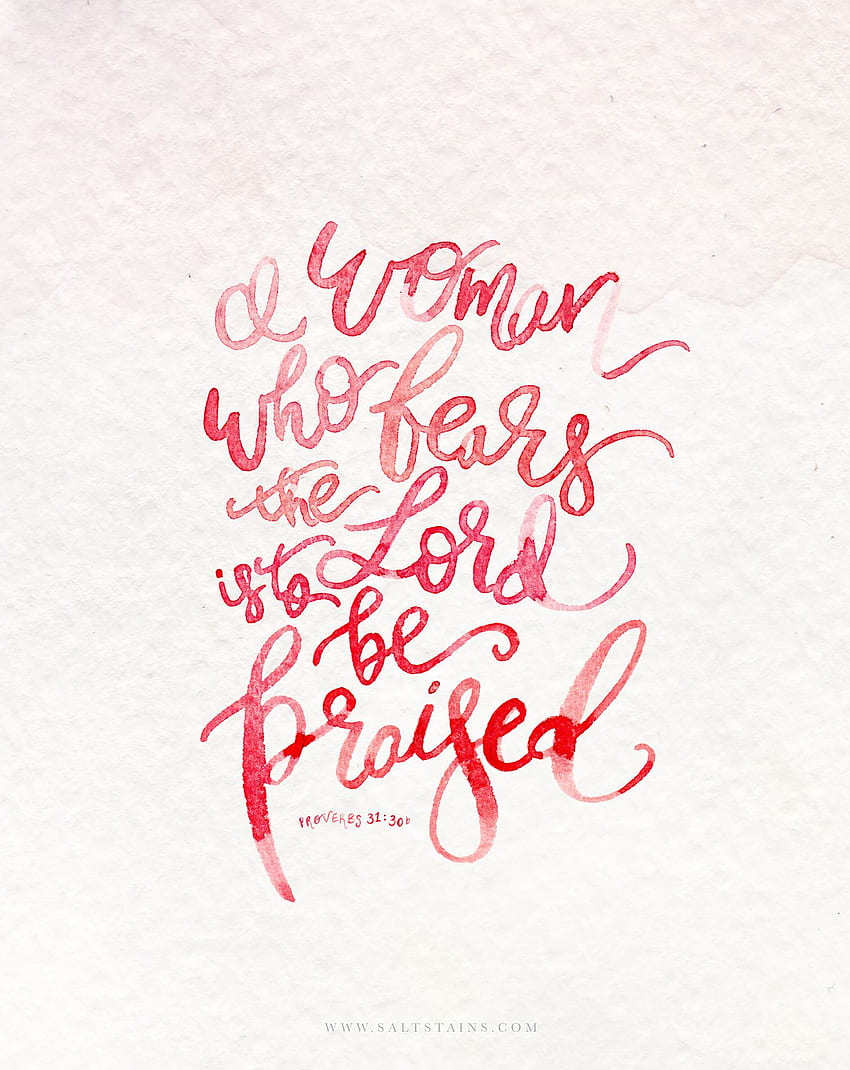 a woman
who fears
the Lord
is to
be
praised
PROVERBS 31:30b
WWW.SALTSTAINS.COM